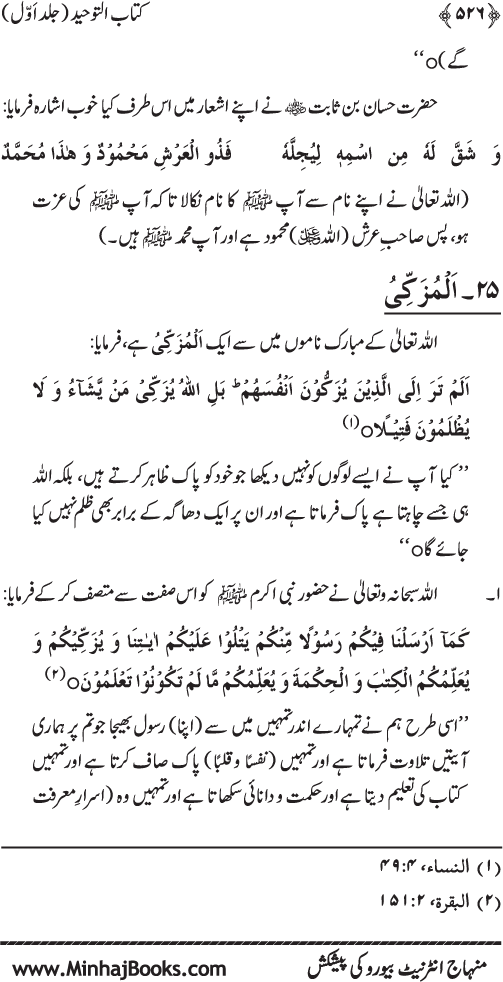 ﴿۵۲۶﴾ کتاب التوحید (جلد اَوّل)
گے)o‘‘
حضرت حسان بن ثابت رضی اللہ عنہ نے اپنے اشعار میں اس طرف کیا خوب اشارہ فرمایا:
وَ شَقَّ لَهٗ مِن اسْمِهٖ لِيُجِلَّهٗ فَذُو الْعَرْشِ مَحْمُوْدٌ وَ هٰذَا مُحَمَّدٌ
(اللہ تعالیٰ نے اپنے نام سے آپ ﷺ کا نام نکالا تاکہ آپ ﷺ کی عزت
ہو، پس صاحبِ عرش (اللہ ﷻ) محمود ہے اور آپ محمد ﷺ ہیں۔)
۲۵۔ اَلْمُزَکِّیُ
اللہ تعالیٰ کے مبارک ناموں میں سے ایک اَلْمُزَکِّیُ ہے، فرمایا:
اَلَمْ تَرَ اِلَی الَّذِیْنَ یُزَکُّوْنَ اَنْفُسَهُمْ ؕ بَلِ اللهُ یُزَکِّیْ مَنْ یَّشَآءُ وَ لَا
یُظْلَمُوْنَ فَتِیْـلًاo(۱)
’’کیا آپ نے ایسے لوگوں کو نہیں دیکھا جو خود کو پاک ظاہر کرتے ہیں، بلکہ اللہ
ہی جسے چاہتا ہے پاک فرماتا ہے اور ان پر ایک دھاگہ کے برابر بھی ظلم نہیں کیا
جائے گاo‘‘
۱۔ اللہ سبحانہ وتعالیٰ نے حضور نبی اکرم ﷺ کو اس صفت سے متصف کر کے فرمایا:
کَمَآ اَرْسَلْنَا فِیْکُمْ رَسُوْلًا مِّنْکُمْ یَتْلُوْا عَلَیْکُمْ اٰیٰـتِنَا وَ یُزَکِّیْکُمْ وَ
یُعَلِّمُکُمُ الْکِتٰبَ وَ الْحِکْمَةَ وَ یُعَلِّمُکُمْ مَّا لَمْ تَکُوْنُوْا تَعْلَمُوْنَo(۲)
’’اسی طرح ہم نے تمہارے اندر تمہیں میں سے (اپنا) رسول بھیجا جو تم پر ہماری
آیتیں تلاوت فرماتا ہے اور تمہیں (نفسًا و قلبًا) پاک صاف کرتا ہے اور تمہیں
کتاب کی تعلیم دیتا ہے اور حکمت و دانائی سکھاتا ہے اور تمہیں وہ (اسرارِ معرفت
(۱) النساء، ۴:۴۹
(۲) البقرة، ۲:۱۵۱
www.MinhajBooks.com منہاج انٹرنیٹ بیورو کی پیشکش